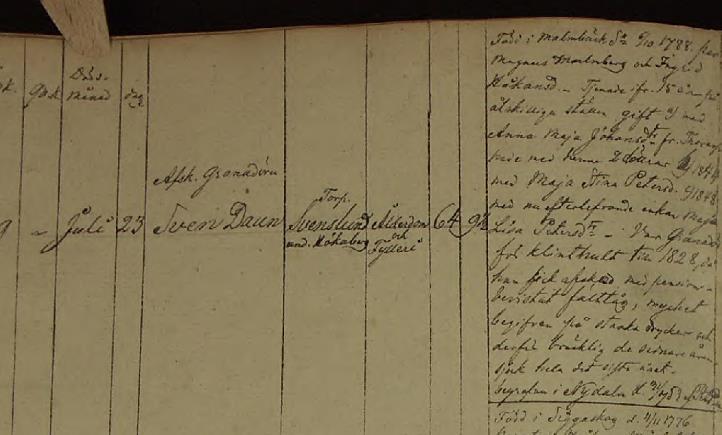 Döds-
månad dag
Afsk. Granadören
Juli 23 Sven Daun
Torp.
Svenslund
und. Hökaberg
Ålderdom
och
Fylleri
64
Född i Malmbäck Sn 9/10 1788.
Magnus Malmberg och Ingrid
Håkansd. - Tjenade ifr. 15 år
åtskilliga ställen gift 1) med
Anna Maja Johansdr fr.
med henne 2
med Maja Stina Petersd.
med nu efterlefvande enkan Maja
Lisa Petersdr - Var Granadör
för Klinthult till 1828 då
han fick afsked med pension -
bevistat fälttåg, mycket
begifven på starka drycker och
derföre bräcklig de sednare åren
sjuk hela det sista året -
begrafven i Nydala d.
Född i d. 4/11 1776